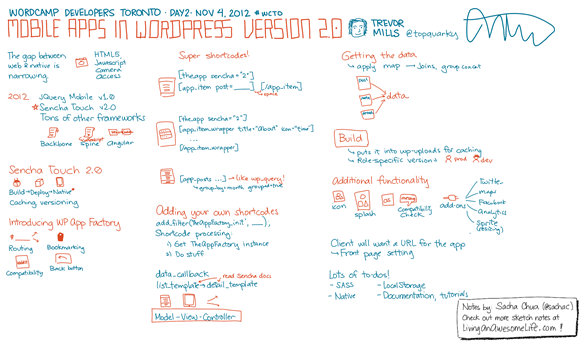 WORDCAMP DEVELOPERS TORONTO · DAY 2 · NOV 4, 2012 #WCTO
MOBILE APPS IN WORDPRESS VERSION 2.0
TREVOR
MILLS @topquarky
The gap between
web & native is
narrowing.
HTML5
Javascript
camera
access
2012 jQuery Mobile v1.0
*Sencha Touch v2.0
Tons of other frameworks
Backbone Spine Angular
Sencha Touch 2.0
Build→Deploy→Native
Caching, versioning
Introducing WP App Factory
Routing Bookmarking
Compatibility Back button
Super shortcodes!
[the.app sencha="2"]
[app_item post=____] [/app_item]
[the.app sencha="2"]
[app_item.wrapper title="about" icon="time"]
...
[app_item.wrapper]
[app.posts ...] → like wp.query!
Adding your own shortcodes
add_filter('TheAppFactory_init', ___);
Shortcode processing:
1) Get TheAppFactory instance
2) Do stuff
data_callback
read Sencha docs
list_template→detail_template
Model-View-Controller
Getting the data
apply map → Joins, group concat
data
Build
puts it into wp-uploads for caching
Role-specific versions prod dev
Additional functionality
icon
splash
compatibility
check
add-ons
Twitter
maps
Facebook
Analytics
Sprite
Client will want a URL for the app
Front page setting
Lots of to-dos!
- SASS - LocalStorage
- Native - Documentation, tutorials
Notes by Sacha Chua (@sachac)
Check out more sketch notes at
LivingAnAwesomeLife.com!